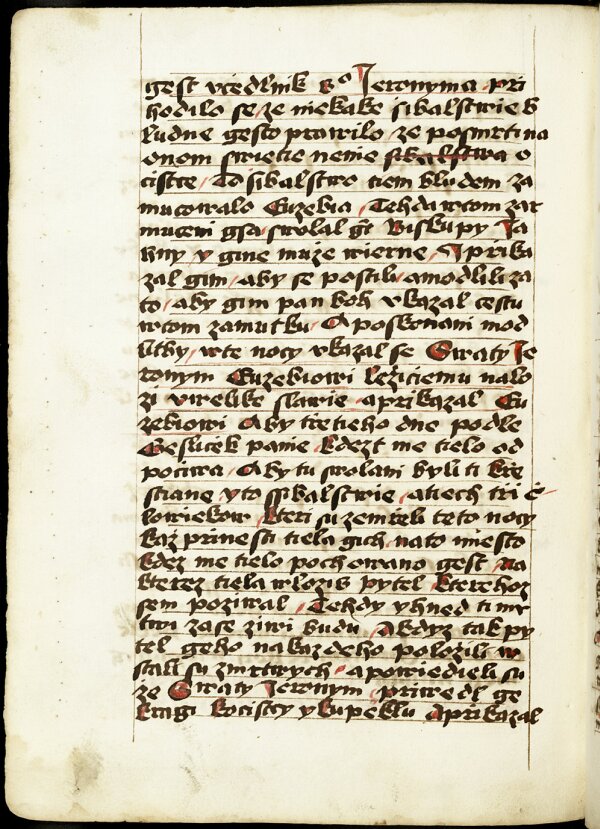 gest vcedlnik B° Jeronyma pri
hodilo se ze niekake sibalstwie b
ludne gesto prawilo ze posmrti na
onom swietie nenie sibalstwa o
cistce To sibalstwo tiem bludem za
mucowalo Euzebia Tehda wtom zar
muceni gsa swolal gt Biskupy Ja
hny y gine muze wierne A prika
zal gim aby se postili amodlili za
to aby gim pan boh vkazal cestu
wtom zamutku A poskonani mod
litby wte nocy vkazal se Swaty Je
ronym Euzebiowi leziciemu nalo
zi vwelike slawie aprikazal Eu
zebiowi Aby tretieho dne podle
Gesliczek panie kdezt me tielo od
pociwa Aby tu swolani byli ti kre
stiane yto ssibalstwie atiech tri c
lowiekow kteri su zemreli teto nocy
kaz prinesti tiela gich nato miesto
kdez me tielo pochowano gest na
kterez tiela wlozis pytel kterehoz
sem poziwal Tehdy yhned ti mr
twi zase ziwi budu Akdyz tak py
tel geho nakazdeho polozili w
stali su zmrtwych apowiedieli su
ze Swaty Jeronym priwedl ge
kragi kocistcy ykupeklu Aprikazal